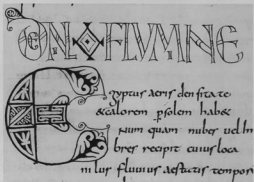 FLVMINE
Egyptus aeris densitate
& calorem p solem hab&
num quam nubes uel
bres recipit cuius loca
nilus fluuius aestatis tempor